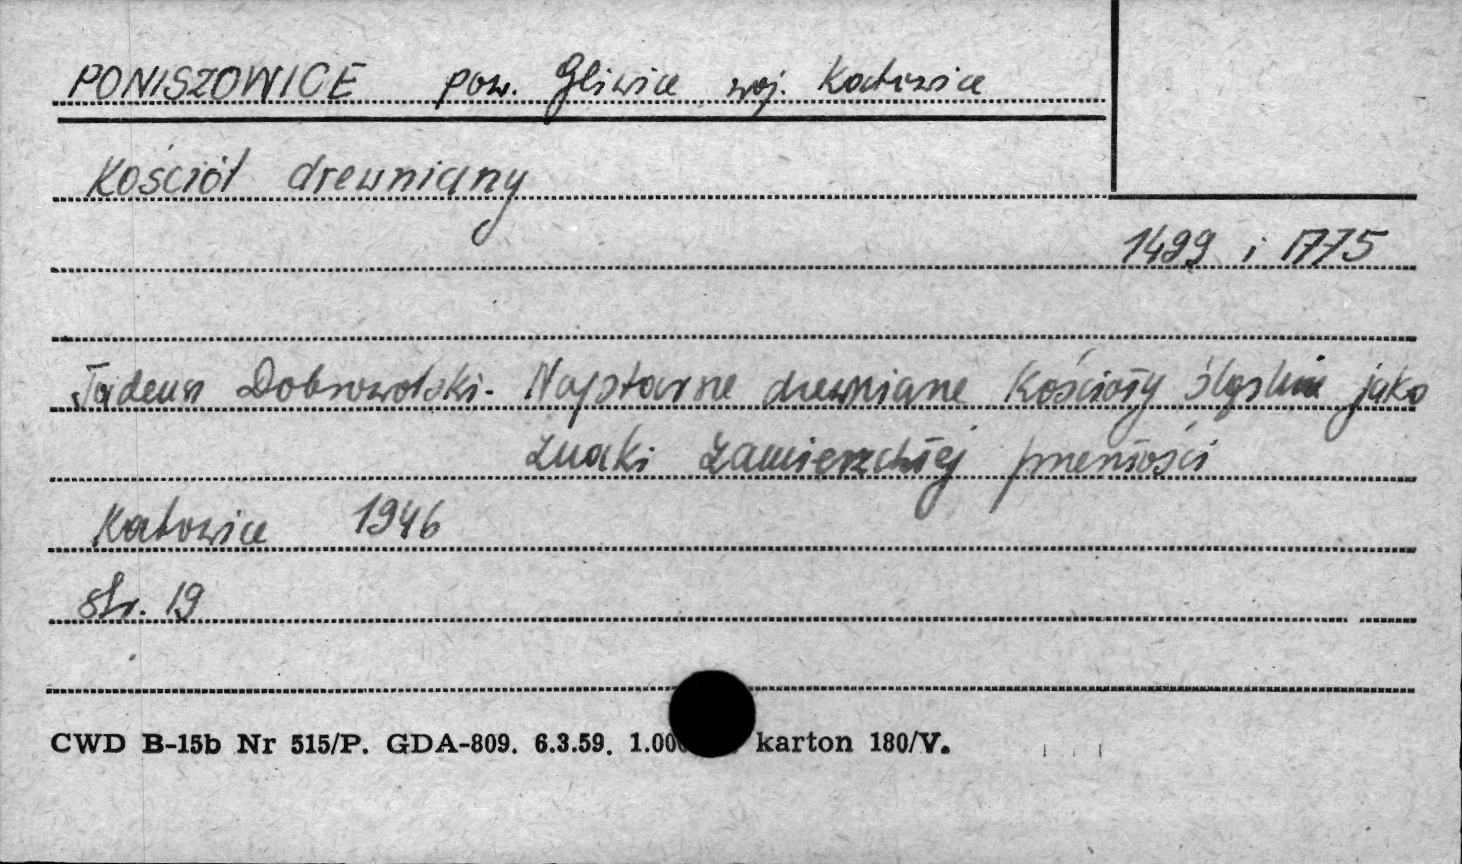 PONISZOWICE pow. Gliwice woj. Katowice
Kościół drewniany
1499 i 1775
Tadeusz Dobrowolski. Najstarsze drewniane Kościoły śląskie jako
znaki zamierzchłej przeszłości
Katowice 1946
str. 19
CWD B-15b Nr 515/P. GDA-809. 6.3.59. 1.00 karton 180/V.